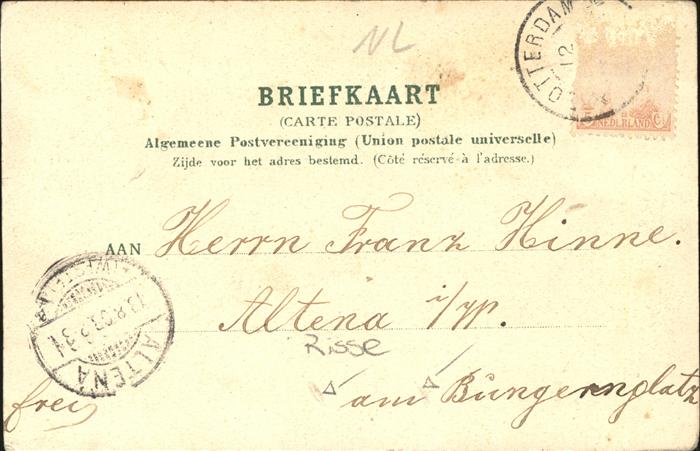 NL
OTTERDAM
12
NEDERLAND
BRIEFKAART
(CARTE POSTALE)
Algemeene Postvereeniging (Union postale universelle)
Zijde voor het adres bestemd. (Côté réservé à l'adresse.)
AAN Herrn Franz Hinne.
Altena i/W.
Risse
am Bungernplatz
frei
ALTENA